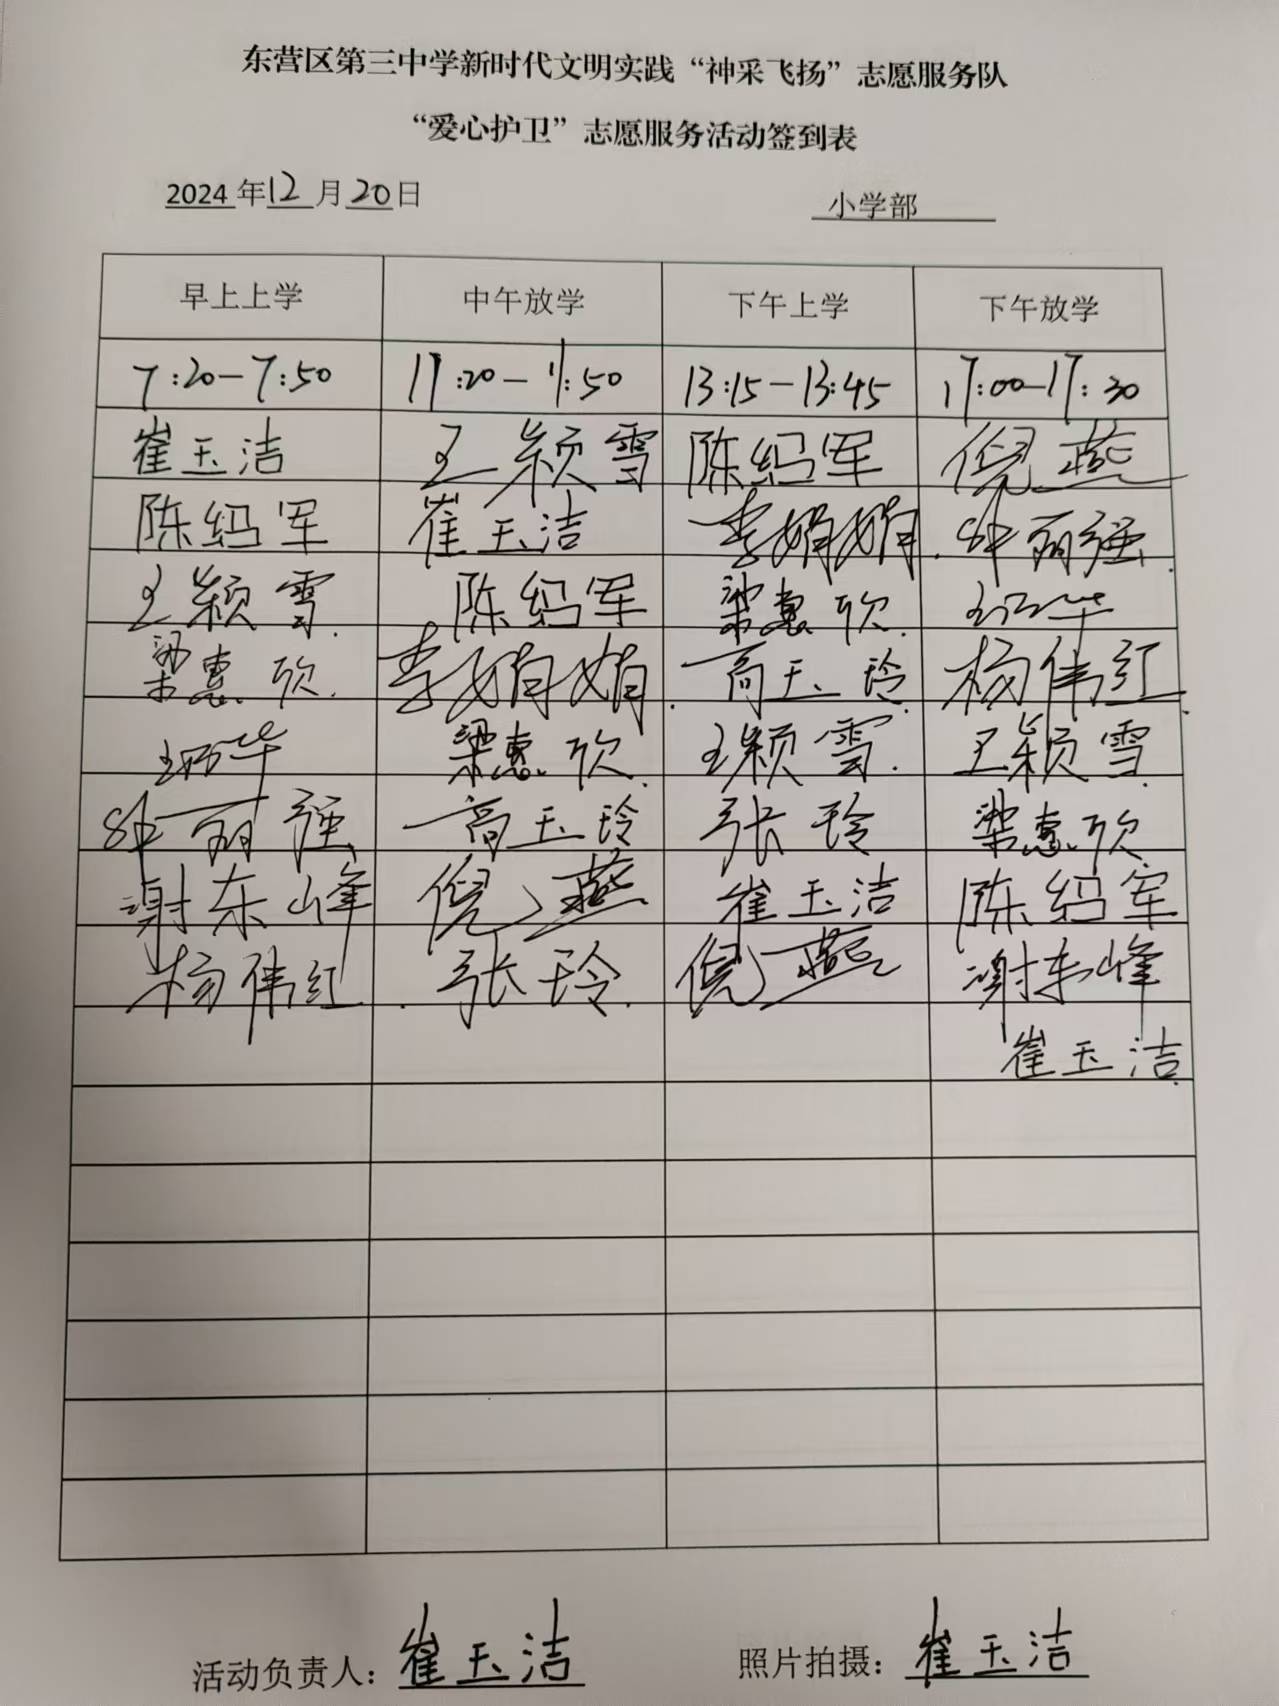 东营区第三中学新时代文明实践“神采飞扬”志愿服务队
“爱心护卫”志愿服务活动签到表
2024 年 12 月 20 日 小学部
早上上学 中午放学 下午上学 下午放学
7:20-7:50 11:20-11:50 13:15-13:45 17:00-17:30
崔玉洁 王颖雪 陈绍军 倪燕
陈绍军 崔玉洁 李娟娟 丽强
王颖雪 陈绍军 梁惠欣 华
梁惠欣 李娟娟 高玉玲 杨伟红
华 梁惠欣 王颖雪 王颖雪
丽强 高玉玲 张玲 梁惠欣
谢东峰 倪燕 崔玉洁 陈绍军
杨伟红 张玲 倪燕 谢东峰
崔玉洁
活动负责人：崔玉洁 照片拍摄：崔玉洁